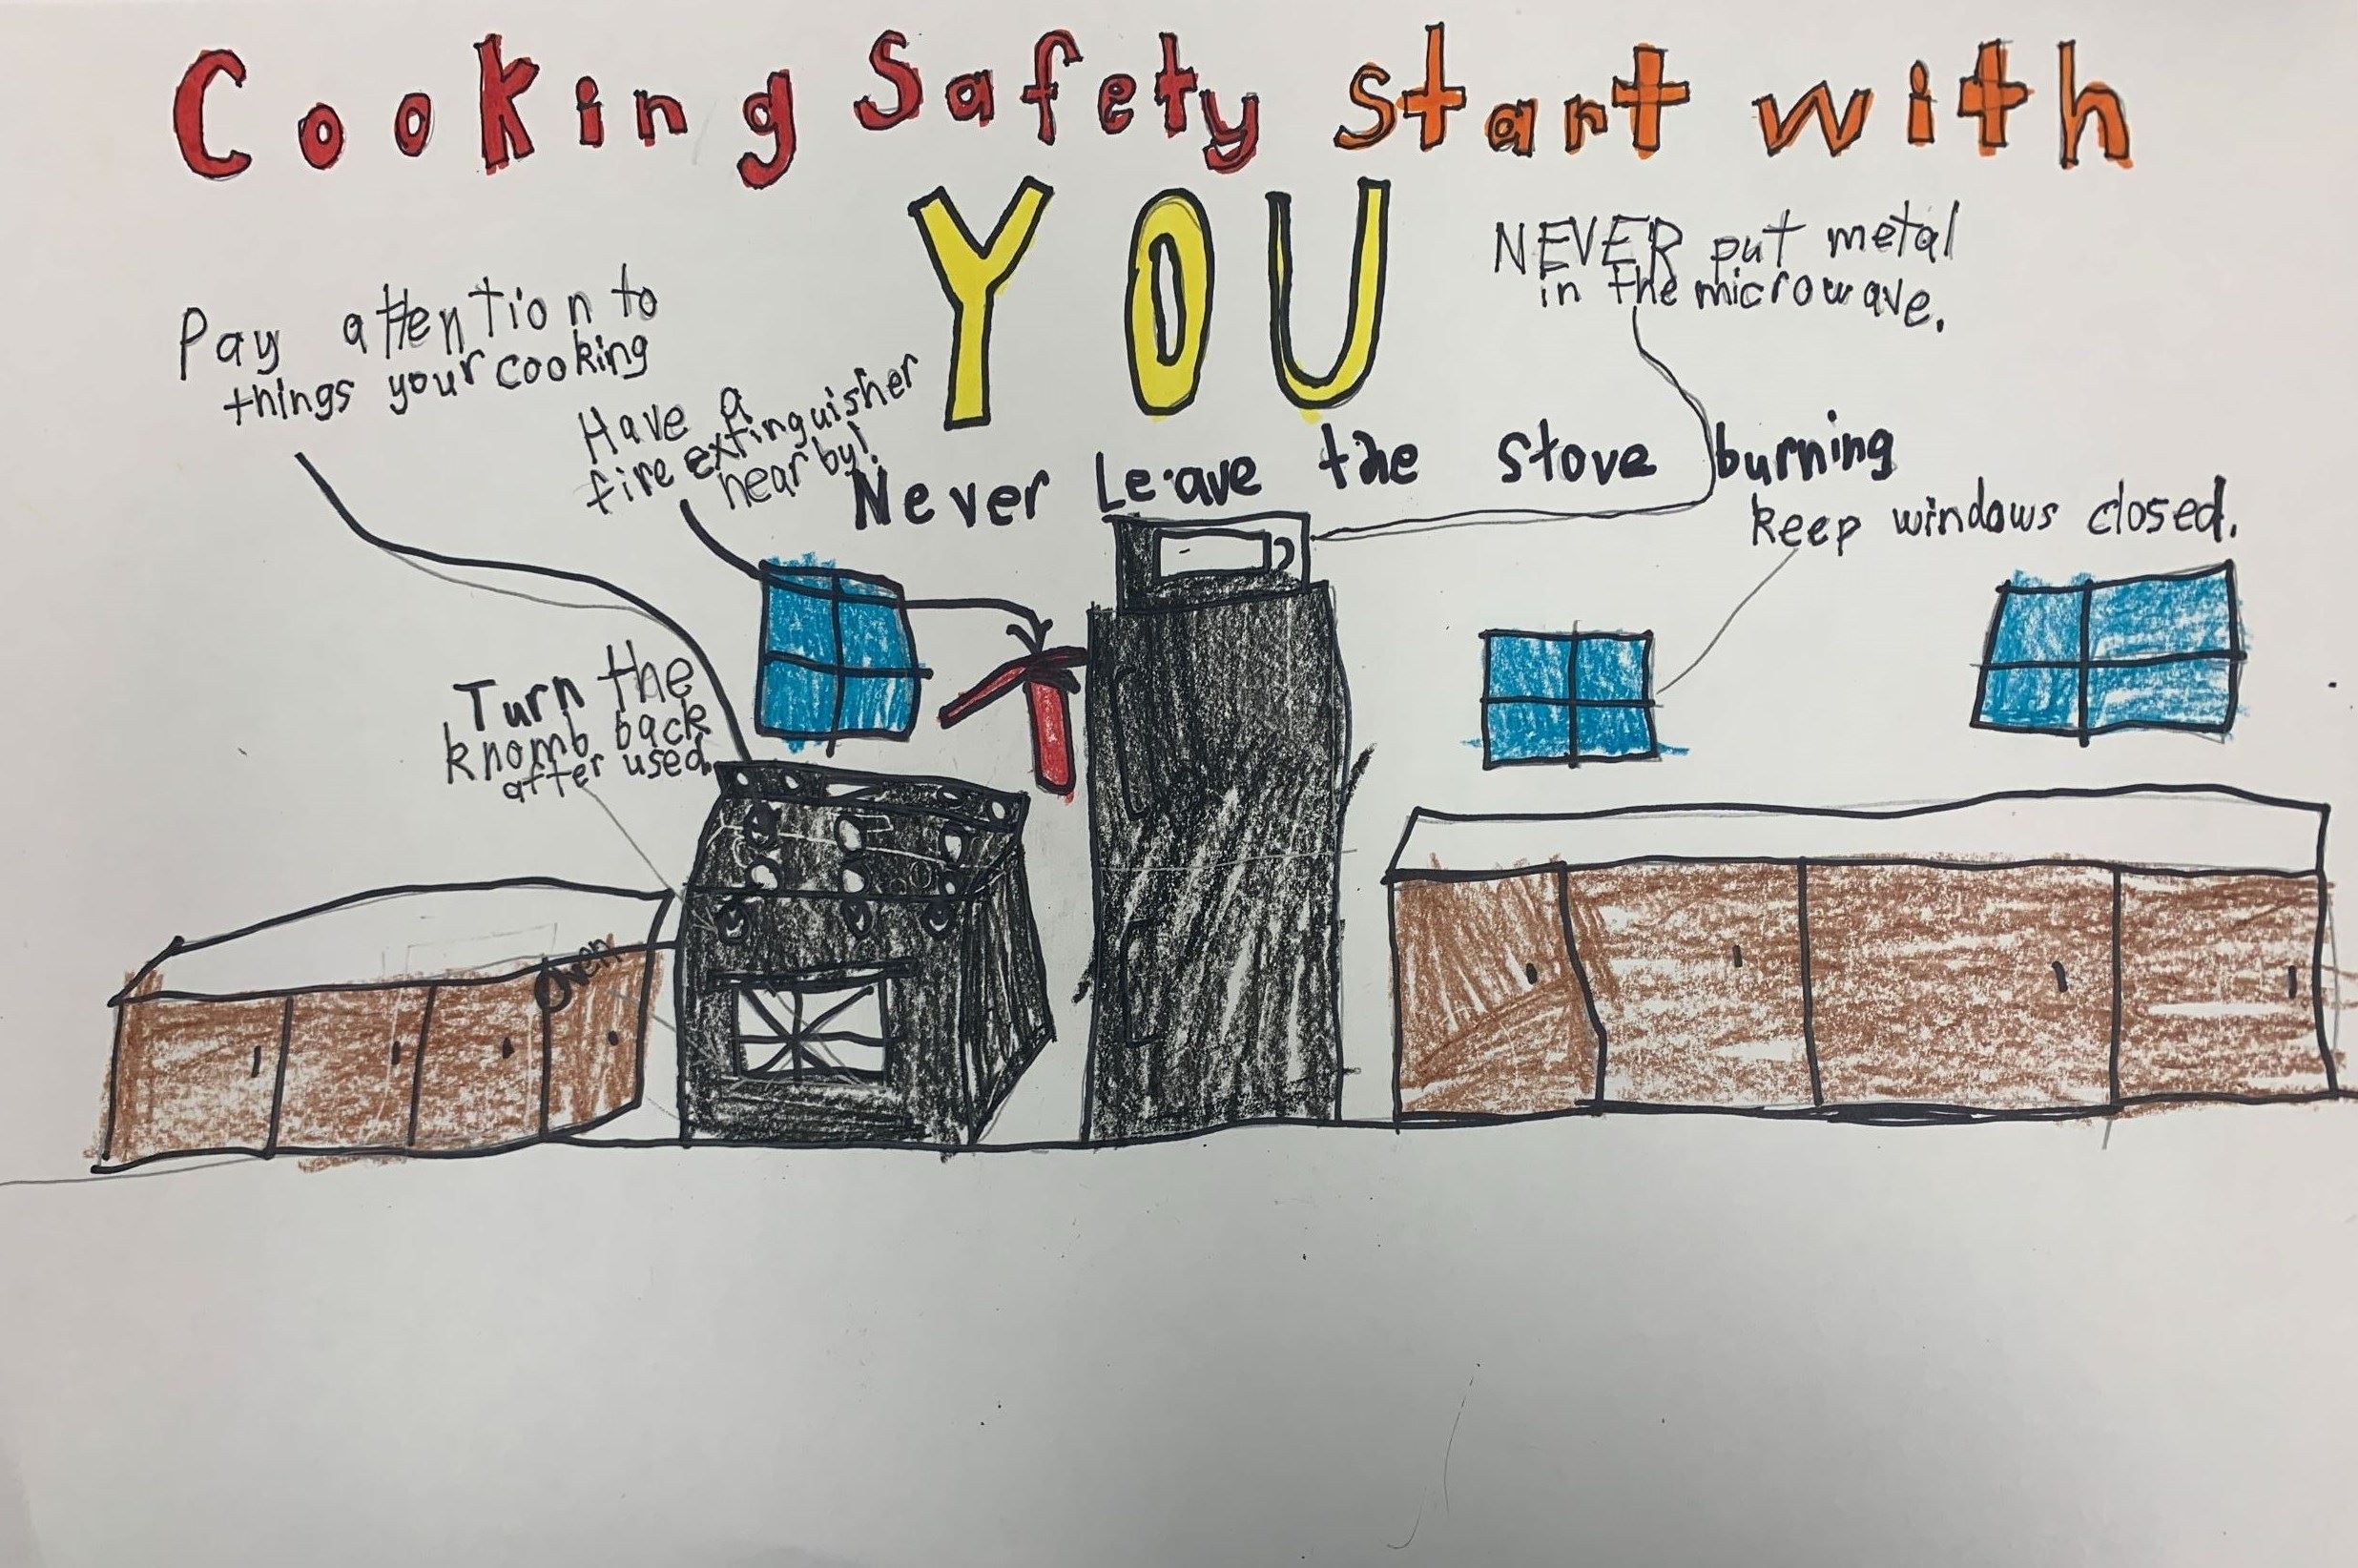 Cooking Safety start with
YOU
NEVER put metal
in the microwave.
Pay attention to
things your cooking
Have a
fire extinguisher
near by!
Never Leave the stove burning
keep windows closed.
Turn the
knomb back
after used.
Oven